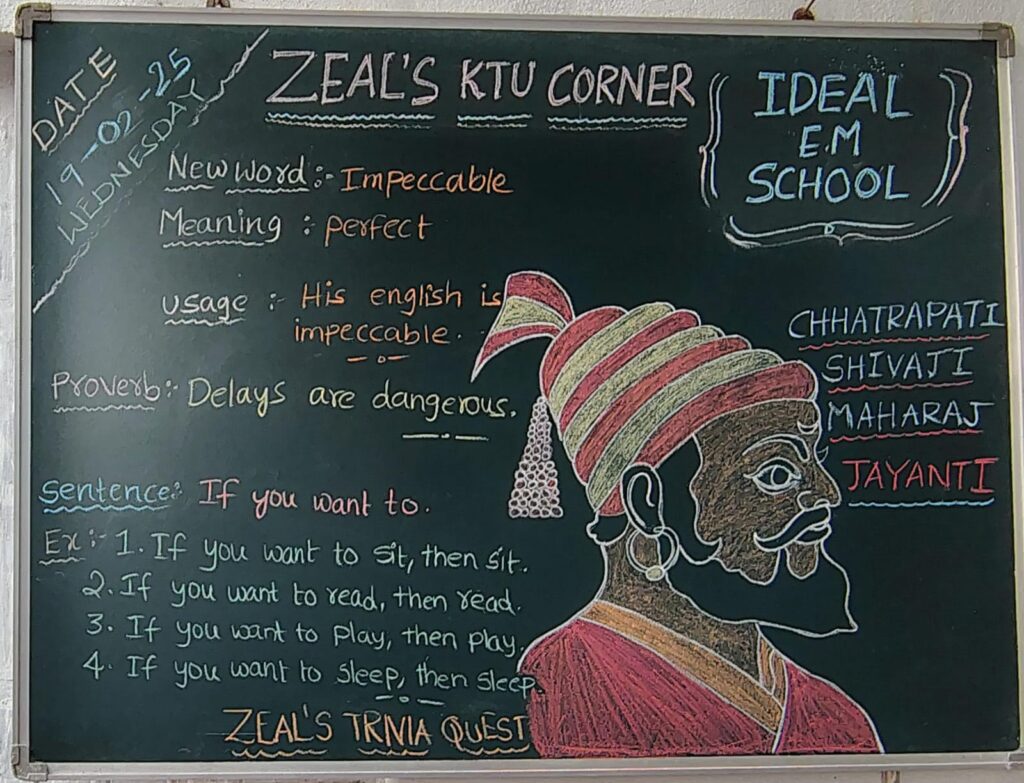 DATE
19-02-25
WEDNESDAY
ZEAL'S KTU CORNER
IDEAL
E.M
SCHOOL
New word :- Impeccable
Meaning : perfect
usage :- His english is
impeccable.
Proverb :- Delays are dangerous.
CHHATRAPATI
SHIVAJI
MAHARAJ
JAYANTI
Sentence : If you want to.
Ex :- 1. If you want to sit, then sit.
2. If you want to read, then read.
3. If you want to play, then play.
4. If you want to sleep, then sleep.
ZEAL'S TRNIA QUEST